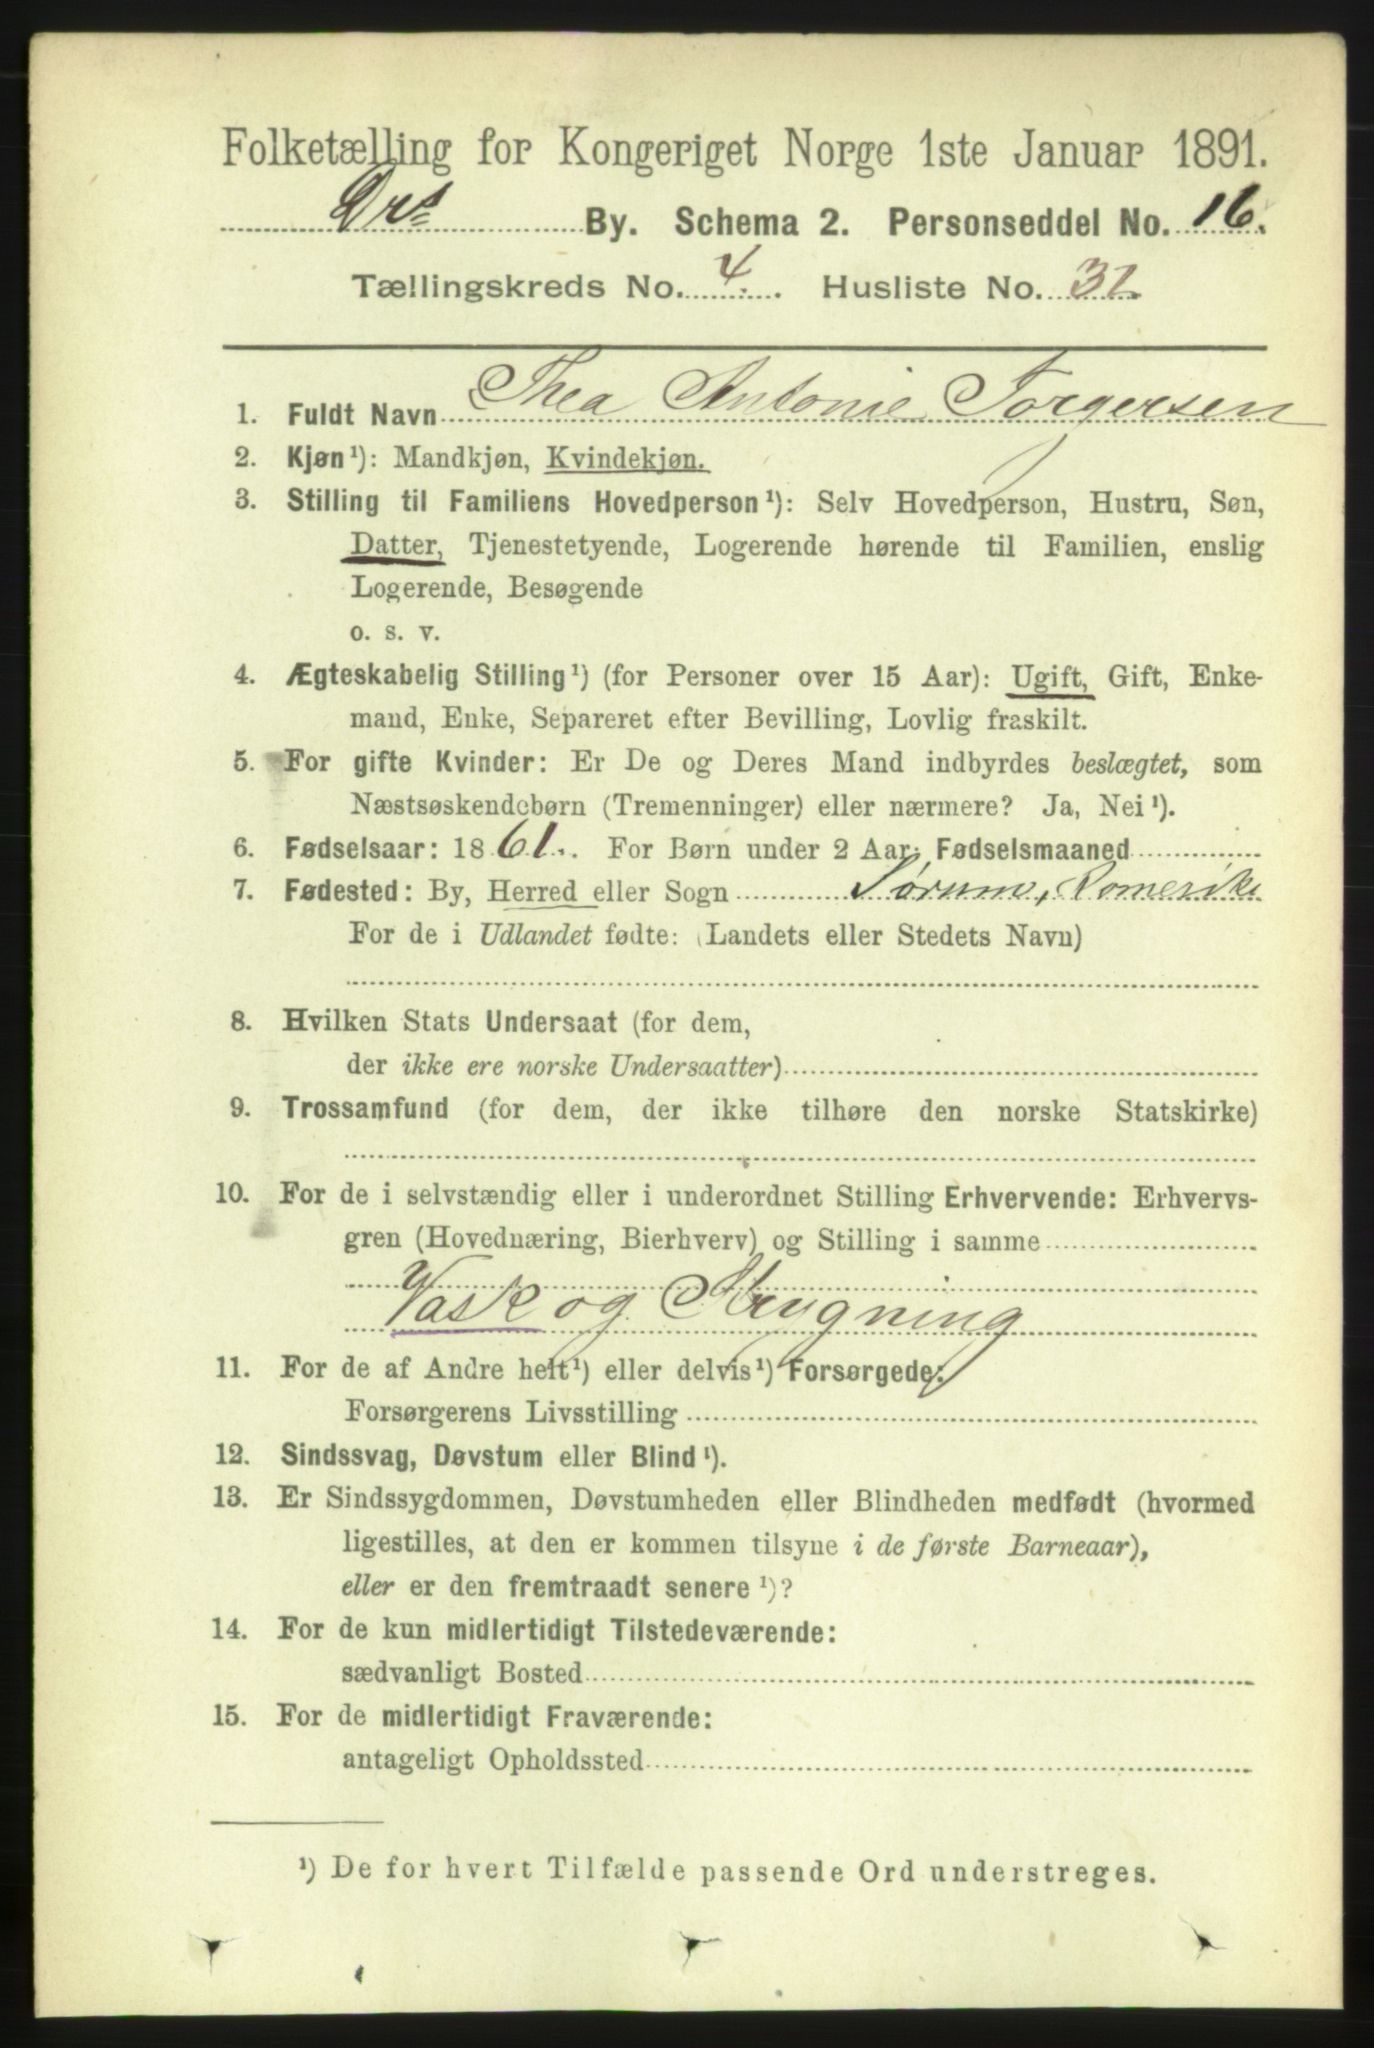 Folketælling for Kongeriget Norge 1ste Januar 1891.
Drs By. Schema 2. Personseddel No. 16.
Tællingskreds No. 4. Husliste No. 31
1. Fuldt Navn Thea Antonie Torgersen
2. Kjøn¹): Mandkjøn, Kvindekjøn.
3. Stilling til Familiens Hovedperson¹): Selv Hovedperson, Hustru, Søn,
Datter, Tjenestetyende, Logerende hørende til Familien, enslig
Logerende, Besøgende
o. s. v.
4. Ægteskabelig Stilling¹) (for Personer over 15 Aar): Ugift, Gift, Enke-
mand, Enke, Separeret efter Bevilling, Lovlig fraskilt.
5. For gifte Kvinder: Er De og Deres Mand indbyrdes beslægtet, som
Næstsøskendebørn (Tremenninger) eller nærmere? Ja, Nei¹).
6. Fødselsaar: 1861. For Børn under 2 Aar: Fødselsmaaned
7. Fødested: By, Herred eller Sogn Sørum, Romerike
For de i Udlandet fødte: (Landets eller Stedets Navn)
8. Hvilken Stats Undersaat (for dem,
der ikke ere norske Undersaatter)
9. Trossamfund (for dem, der ikke tilhøre den norske Statskirke)
10. For de i selvstændig eller i underordnet Stilling Erhvervende: Erhvervs-
gren (Hovednæring, Bierhverv) og Stilling i samme
Vask og Strygning
11. For de af Andre helt¹) eller delvis¹) Forsørgede:
Forsørgerens Livsstilling
12. Sindssvag, Døvstum eller Blind¹).
13. Er Sindssygdommen, Døvstumheden eller Blindheden medfødt (hvormed
ligestilles, at den er kommen tilsyne i de første Barneaar),
eller er den fremtraadt senere¹)?
14. For de kun midlertidigt Tilstedeværende:
sædvanligt Bosted
15. For de midlertidigt Fraværende:
antageligt Opholdssted
¹) De for hvert Tilfælde passende Ord understreges.